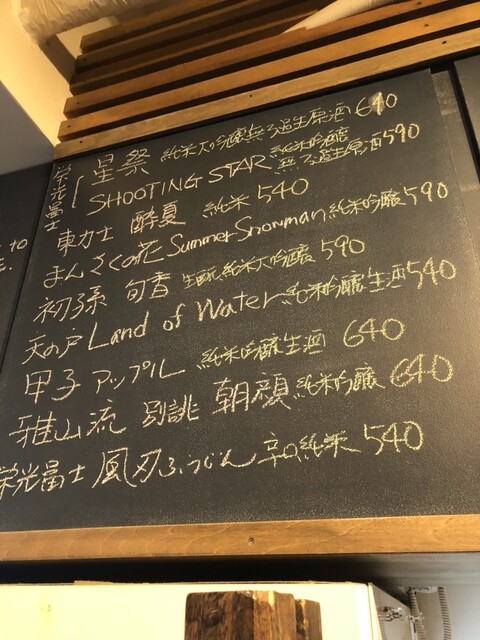 栄光冨士 星祭 純米大吟醸無ろ過生原酒 640
SHOOTING STAR 純米吟醸無ろ過生原酒 590
東力士 酔夏 純米 540
まんさくの花 Summer Snowman 純米吟醸 590
初孫 旬香 生酛純米大吟醸 590
天の戸 Land of Water 純米吟醸生酒 540
甲子 アップル 純米吟醸生酒 640
雅山流 別誂 朝顔 純米吟醸 640
栄光冨士 風刃ふうじん 辛口純米 540
to